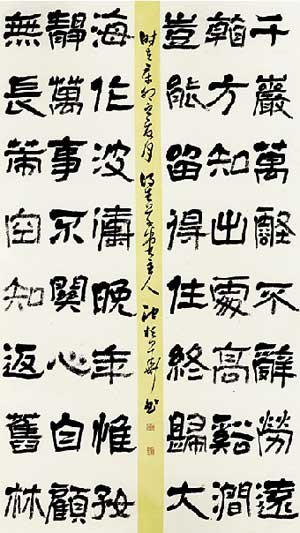 千巖萬壑不辭勞遠
看方知出處高谿澗
豈能留得住終歸大
时在辛卯之夏月 主人 书
海作波濤晚年惟好
靜萬事不關心自顧
無長策空知返舊林